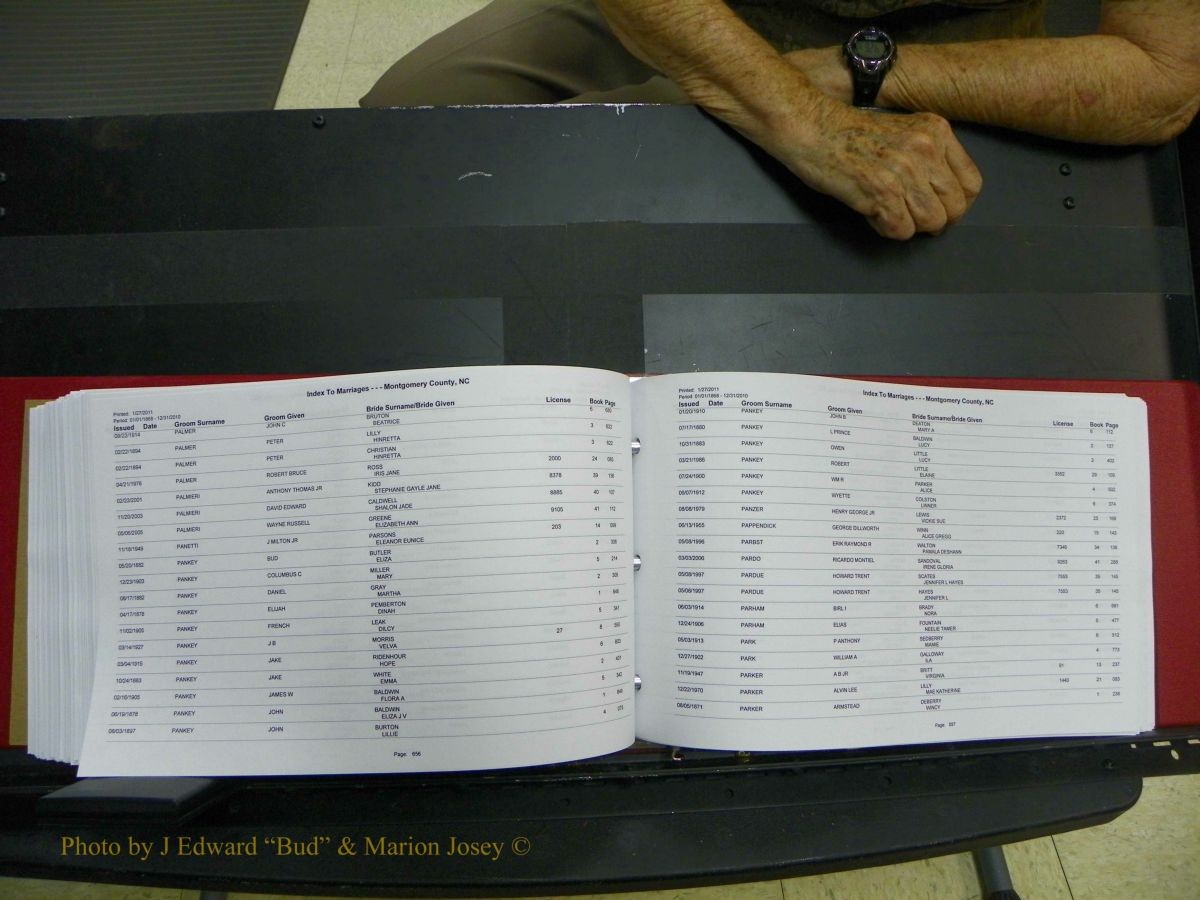 Index To Marriages - - - Montgomery County, NC
Printed: 1/27/2011
Period: 01/01/1868 - 12/31/2010
Issued Date Groom Surname Groom Given Bride Surname/Bride Given License Book Page
08/22/1914 PALMER JOHN C BRUTON 6 680
BEATRICE
02/22/1894 PALMER PETER LILLY 3 622
HINRETTA
02/22/1894 PALMER PETER CHRISTIAN 3 622
HINRETTA
04/21/1976 PALMER ROBERT BRUCE ROSS 2000 24 080
IRIS JANE
02/23/2001 PALMIERI ANTHONY THOMAS JR KIDD 8378 39
STEPHANIE GAYLE JANE
11/20/2003 PALMIERI DAVID EDWARD CALDWELL 8885 40 107
SHALON JADE
05/06/2005 PALMIERI WAYNE RUSSELL GREENE 9105 41 112
ELIZABETH ANN
11/18/1949 PANETTI J MILTON JR PARSONS 203 14 099
ELEANOR EUNICE
05/20/1882 PANKEY BUD BUTLER 2
ELIZA
12/23/1903 PANKEY COLUMBUS C MILLER 5 214
MARY
06/17/1882 PANKEY DANIEL GRAY 2 309
MARTHA
04/17/1878 PANKEY ELIJAH PEMBERTON 1
DINAH
11/02/1905 PANKEY FRENCH LEAK 5 341
DILCY
03/14/1927 PANKEY J B MORRIS 27 8
VELVA
03/04/1915 PANKEY JAKE RIDENHOUR 6
HOPE
10/24/1883 PANKEY JAKE WHITE 2 401
EMMA
02/10/1905 PANKEY JAMES W BALDWIN 5
FLORA A
06/19/1878 PANKEY JOHN BALDWIN 1
ELIZA J V
06/03/1897 PANKEY JOHN BURTON 4 079
LILLIE
Page: 656
Printed: 1/27/2011
Index To Marriages - - - Montgomery County, NC
Period: 01/01/1868 - 12/31/2010
Issued Date Groom Surname Groom Given Bride Surname/Bride Given License Book Page
01/20/1910 PANKEY JOHN B DEATON 112
MARY A
07/17/1880 PANKEY L PRINCE BALDWIN 2 137
LUCY
10/31/1883 PANKEY OWEN LITTLE 2 402
LUCY
03/21/1986 PANKEY ROBERT LITTLE 3352 29 109
ELAINE
07/24/1900 PANKEY WM R PARKER 4
ALICE
06/07/1912 PANKEY WYETTE COLSTON 6 374
LINNER
08/08/1979 PANZER HENRY GEORGE JR LEWIS 2372 25 169
VICKIE SUE
06/13/1955 PAPPENDICK GEORGE DILLWORTH WINN 220 15 143
ALICE GREGG
05/08/1996 PARBST ERIK RAYMOND R WALTON 7346 34 138
PAMALA DESHANN
03/03/2006 PARDO RICARDO MONTIEL SANDOVAL 9263 41 288
IRENE GLORIA
05/08/1997 PARDUE HOWARD TRENT SCATES 7553 35 145
JENNIFER L HAYES
05/08/1997 PARDUE HOWARD TRENT HAYES 7553 35 145
JENNIFER L
06/03/1914 PARHAM BIRL I BRADY 6 661
NORA
12/24/1906 PARHAM ELIAS FOUNTAIN 5 477
NEELIE TAMER
05/03/1913 PARK P ANTHONY SEDBERRY 6 512
MAMIE
12/27/1902 PARK WILLIAM A GALLOWAY 4 773
ILA
11/19/1947 PARKER A B JR BRITT 91 13 237
VIRGINIA
12/22/1970 PARKER ALVIN LEE LILLY 1440 21 083
MAE KATHERINE
08/05/1871 PARKER ARMSTEAD DEBERRY 1 236
WINCY
Page: 657
Photo by J Edward “Bud” & Marion Josey ©